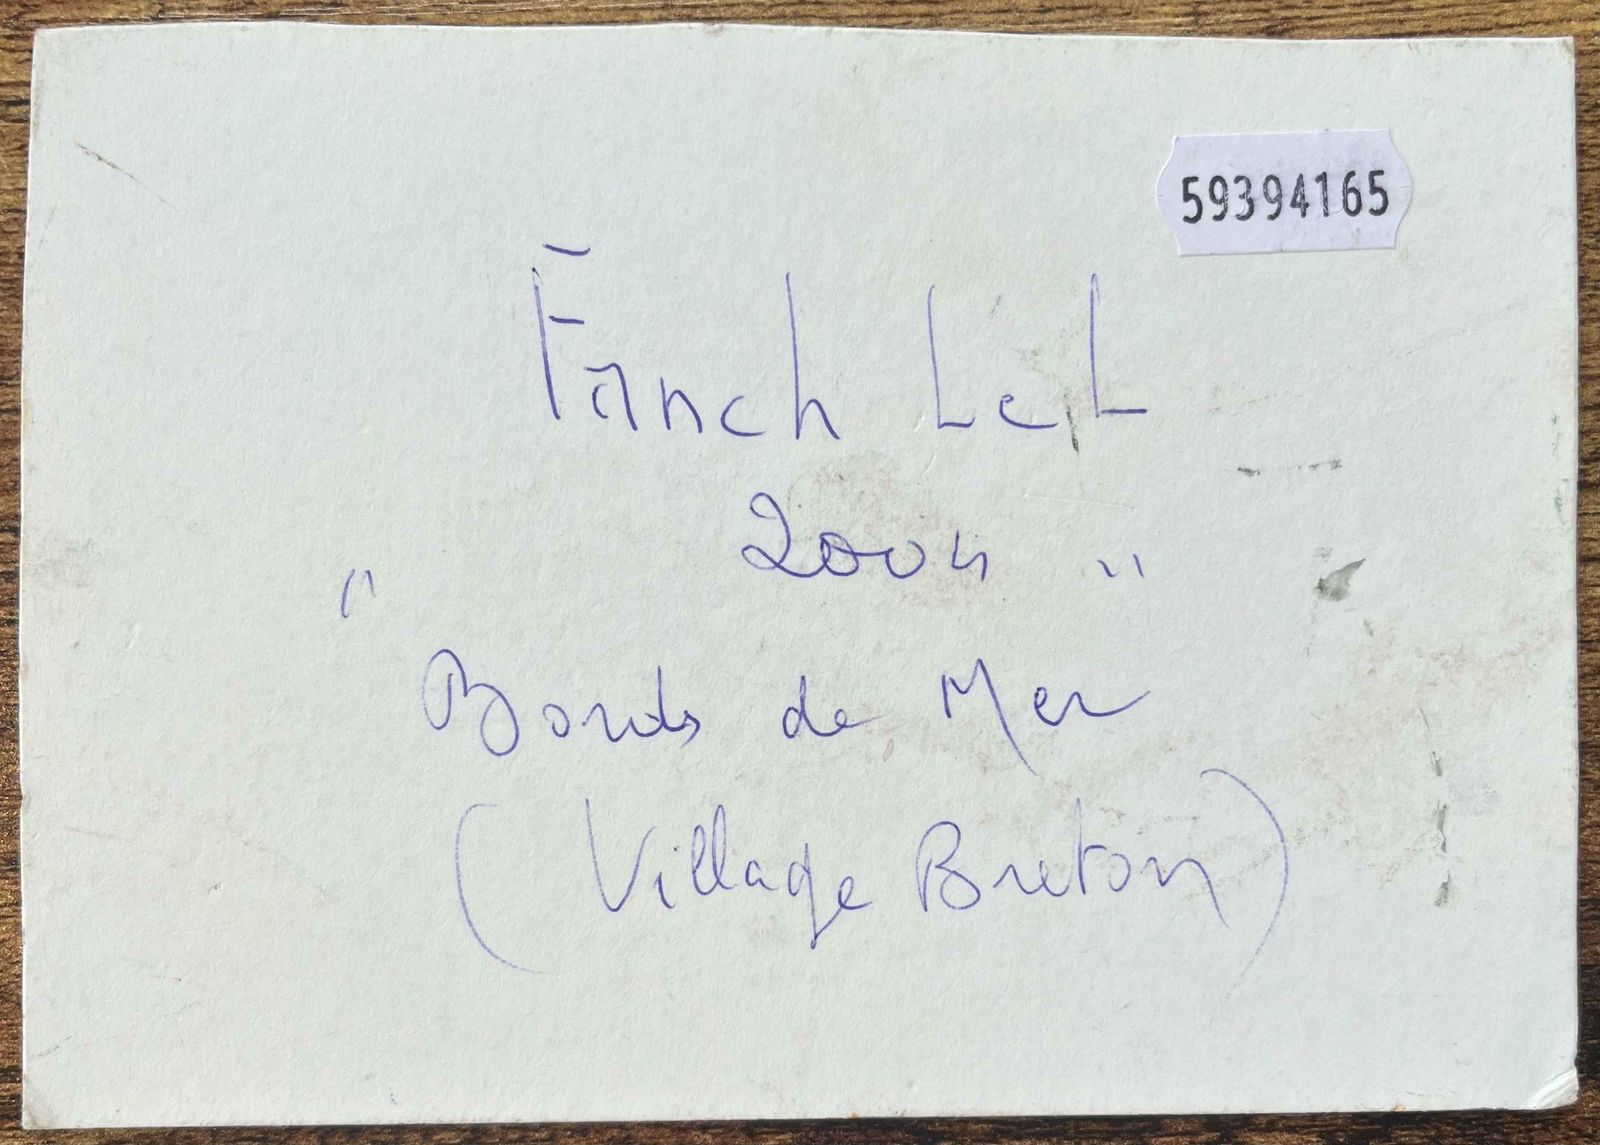 59394165
Fanch Lel
2004
" "
Bords de Mer
(Village Breton)